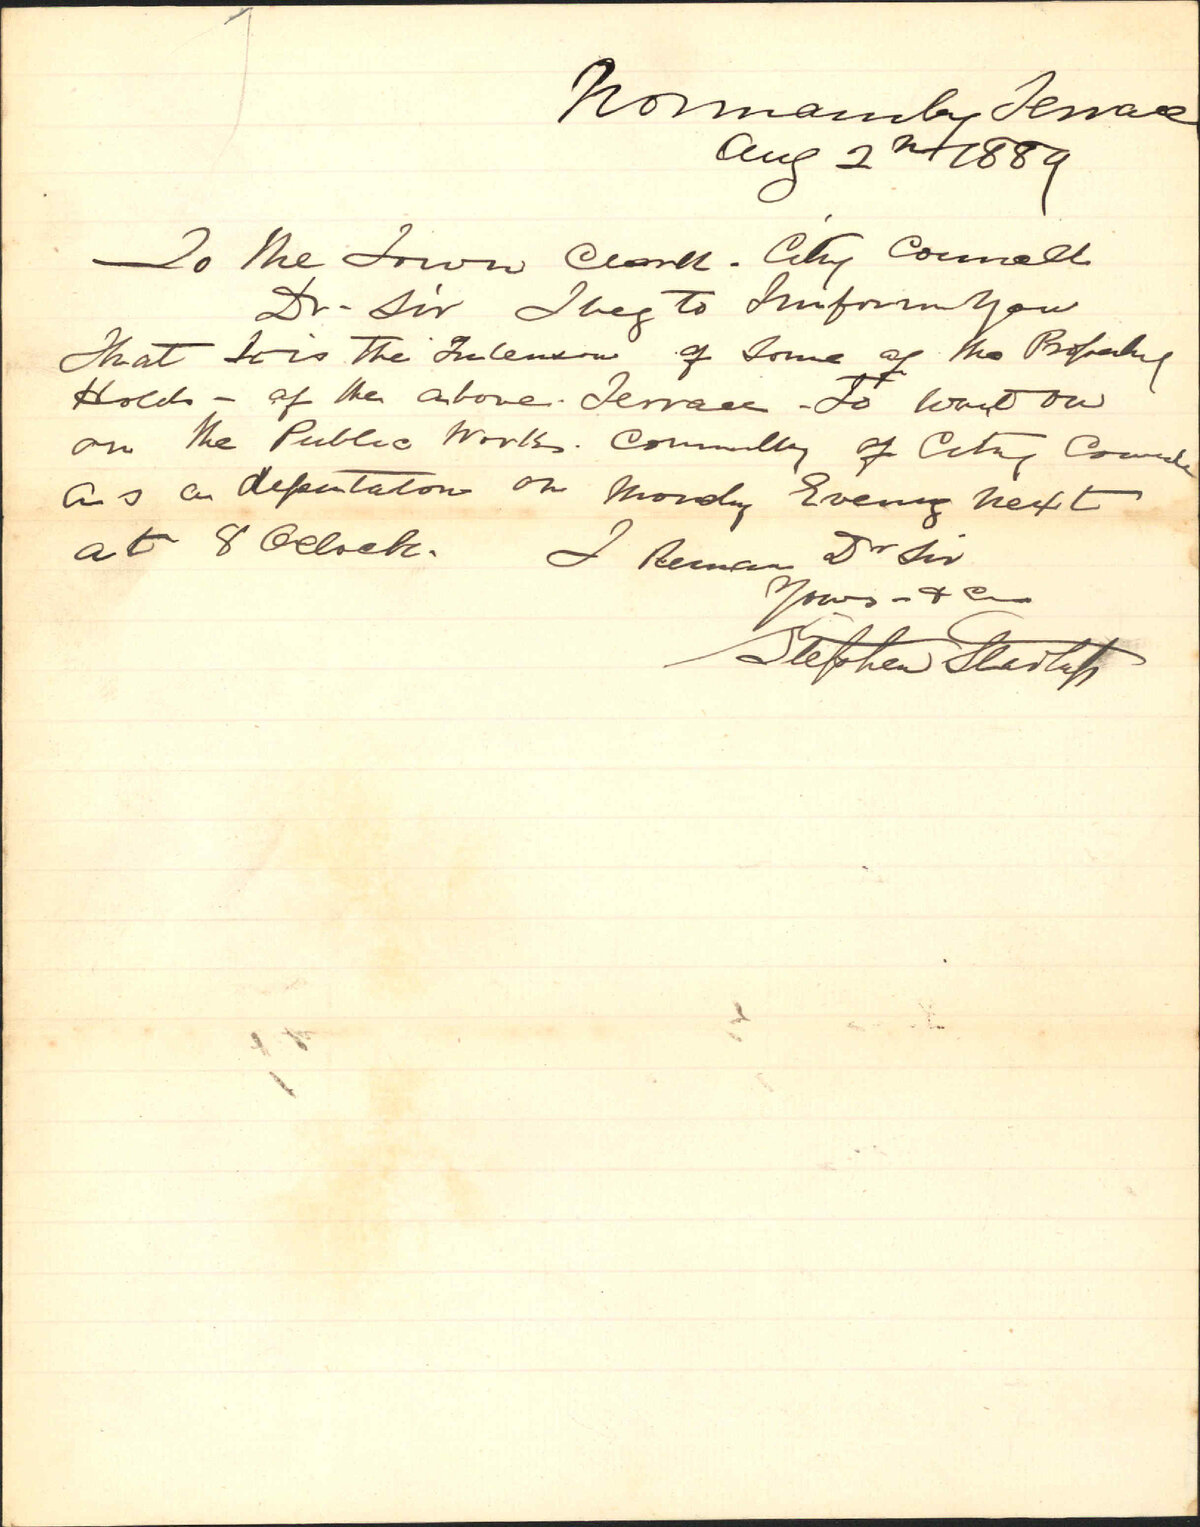 Normanby Terrace
Aug 2nd 1889
To the Town Clerk - City Council
Dr - Sir I beg to Imform You
That It is the Intension of Some of the Property
Holds - of the above - Terrace - To wait on
on the Public Works - Committy of City Council
as a deputation on Monday Evening next
at 8 Oclock. I Remain Dr Sir
Yours - & C
Stephen